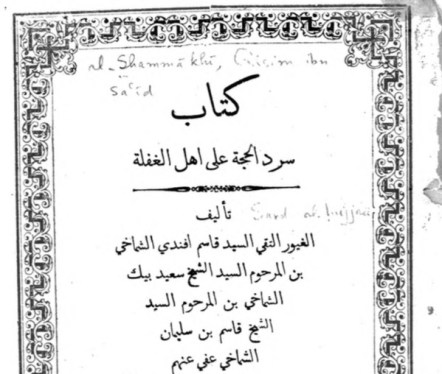 al-Shammākhī, Qāsim ibn
Sa'īd
كتاب
سرد الحجة على اهل الغفلة
تأليف
Sard al-ḥujjah
الغيور التقي السيد قاسم افندي الشماخي
بن المرحوم السيد الشيخ سعيد بيك
الشماخي بن المرحوم السيد
الشيخ قاسم بن سليمان
الشماخي عفي عنهم